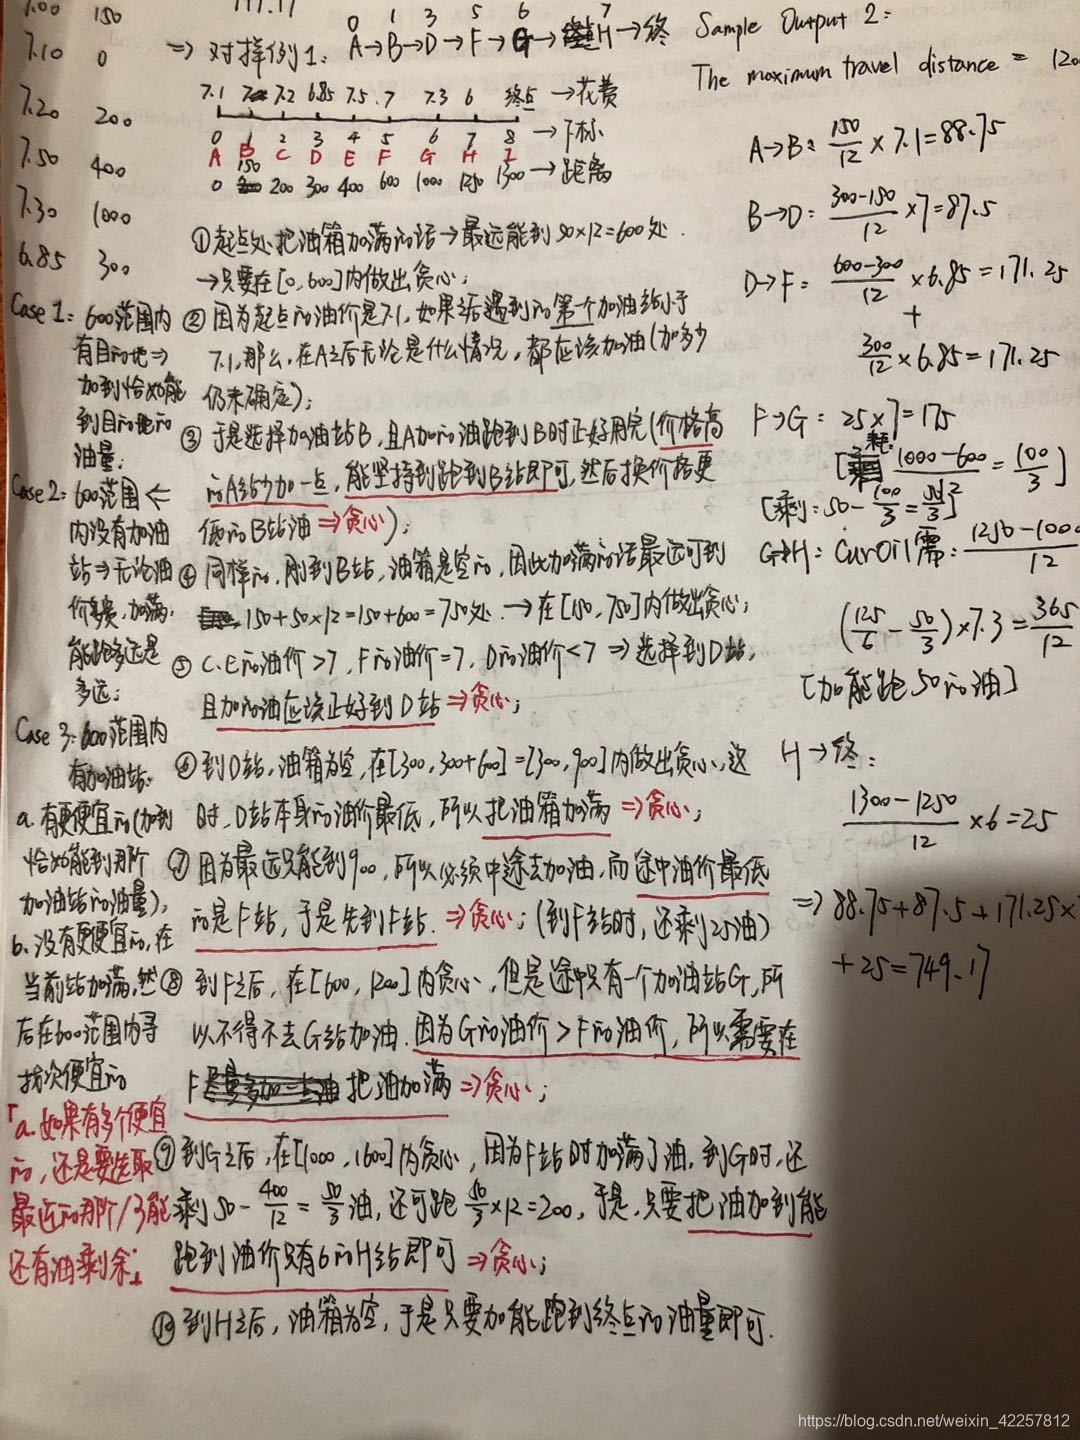 7.00 150
7.10 0
7.20 200
7.50 400
7.30 1000
6.85 300
0 1 3 5 6 7
⇒ 对样例1: A→B→D→F→G→H→终
7.1 7 7.2 6.85 7.5 7 7.3 6 终点 →花费
0 1 2 3 4 5 6 7 8 →下标
A B C D E F G H I
0 150 200 300 400 600 1000 1250 1300 →距离
①起点处把油箱加满的话→最远能到50×12=600处.
→只要在[0,600]内做出贪心;
②因为起点的油价是7.1,如果之后遇到的第一个加油站小于
7.1,那么,在A之后无论是什么情况,都应该加油(加多少
仍未确定);
③于是选择加油站B,且A加的油跑到B时正好用完(价格高
的A站少加一点,能坚持到跑到B站即可,然后换价格更
低的B站油⇒贪心);
④同样的,刚到B站,油箱是空的,因此加满的话最远可到
150+50×12=150+600=750处.→在[150,750]内做出贪心;
⑤C.E的油价>7,F的油价=7,D的油价<7⇒选择到D站,
且加的油应该正好到D站⇒贪心;
⑥到D站,油箱为空,在[300,300+600]=[300,900]内做出贪心,这
时,D站本身的油价最低,所以把油箱加满⇒贪心;
⑦因为最远只能到900,所以必须中途去加油,而途中油价最低
的是F站,于是先到F站.⇒贪心;(到F站时,还剩25油)
⑧到F之后,在[600,1200]内贪心,但是途中只有一个加油站G,所
以不得不去G站加油.因为G的油价>F的油价,所以需要在
F 把油加满⇒贪心;
⑨到G之后,在[1000,1600]内贪心,因为F站时加满了油,到G时,还
剩50-400/12=50/3油,还可跑50/3×12=200,于是,只要把油加到能
跑到油价只有6的H站即可⇒贪心;
⑩到H之后,油箱为空,于是只要加能跑到终点的油量即可.
Case 1: 600范围内
有目的地⇒
加到恰好能
到目的地的
油量;
Case 2: 600范围←
内没有加油
站⇒无论油
价多贵,加满,
能跑多远是
多远;
Case 3: 600范围内
有加油站.
a. 有更便宜的(加到
恰好能到那个
加油站的油量);
b. 没有更便宜的,在
当前站加满,然
后在600范围内寻
找次便宜的
「a.如果有多个便宜
的,还是要选取
最近的那个/了能
还有油剩余」
Sample Output 2:
The maximum travel distance = 120
A→B: 150/12 × 7.1=88.75
B→D= (300-150)/12 ×7=87.5
D→F= (600-300)/12 ×6.85=171.25
+
300/12 ×6.85=171.25
F→G: 25×7=175
[耗: (1000-600)/12 = 100/3]
[剩:50-100/3=50/3]
G→H: CurOil 需: (1250-1000)/12
(125/6 - 50/3)×7.3=365/12
[加能跑50的油]
H→终:
(1300-1250)/12 ×6=25
⇒88.75+87.5+171.25×
+25=749.17
https://blog.csdn.net/weixin_42257812